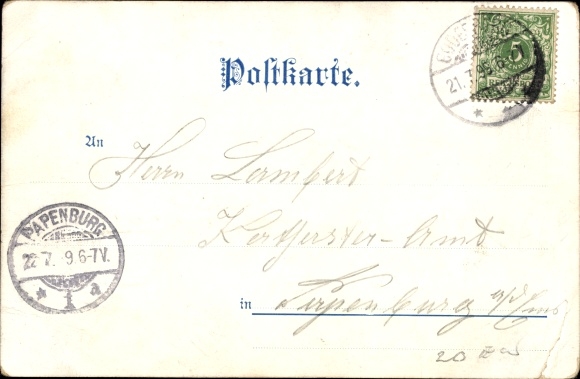 Postkarte.
5
21.7.
An
Herrn Lambert
Kathaster-Amt
PAPENBURG
22 7. 9 6-7V.
* 1 a
in Papenburg a/d Ems
20